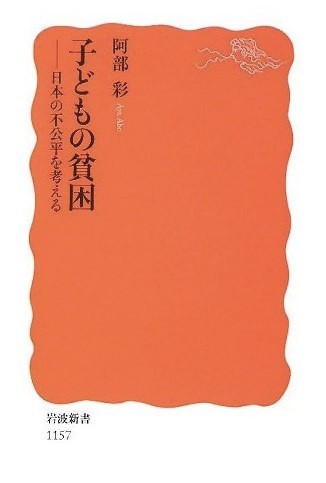 阿部 彩
Aya Abe
子どもの貧困
——日本の不公平を考える
岩波新書
1157